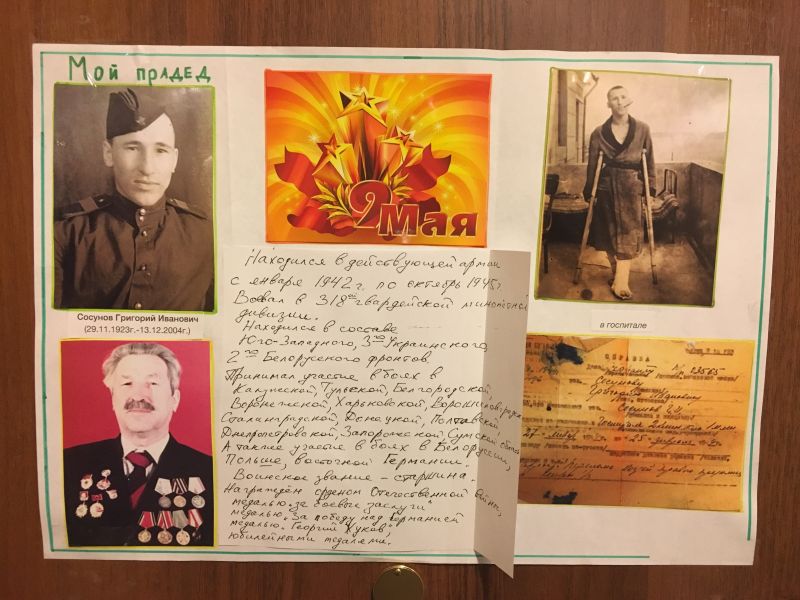 Мой прадед
9 Мая
Сосунов Григорий Иванович
(29.11.1923г.-13.12.2004г.)
Находился в действующей армии
с января 1942 г. по октябрь 1945г.
Воевал в 318ой гвардейской миномётной
дивизии.
Находился в составе
Юго-Западного, 3го Украинского,
2го Белорусского фронтов.
Принимал участие в боях в
Калужской, Тульской, Белгородской,
Воронежской, Харьковской, Ворошиловградской
Сталинградской, Донецкой, Полтавской
Днепропетровской, Запорожской, Сумской областях
А также участие в боях в Белоруссии,
Польше, восточной Германии.
Воинское звание – старшина.
Награждён орденом Отечественной войны,
медалью за боевые заслуги
медалью "За победу над Германией
медалью "Георгий Жуков",
юбилейными медалями.
в госпитале
СПРАВКА
23565
Сосунову